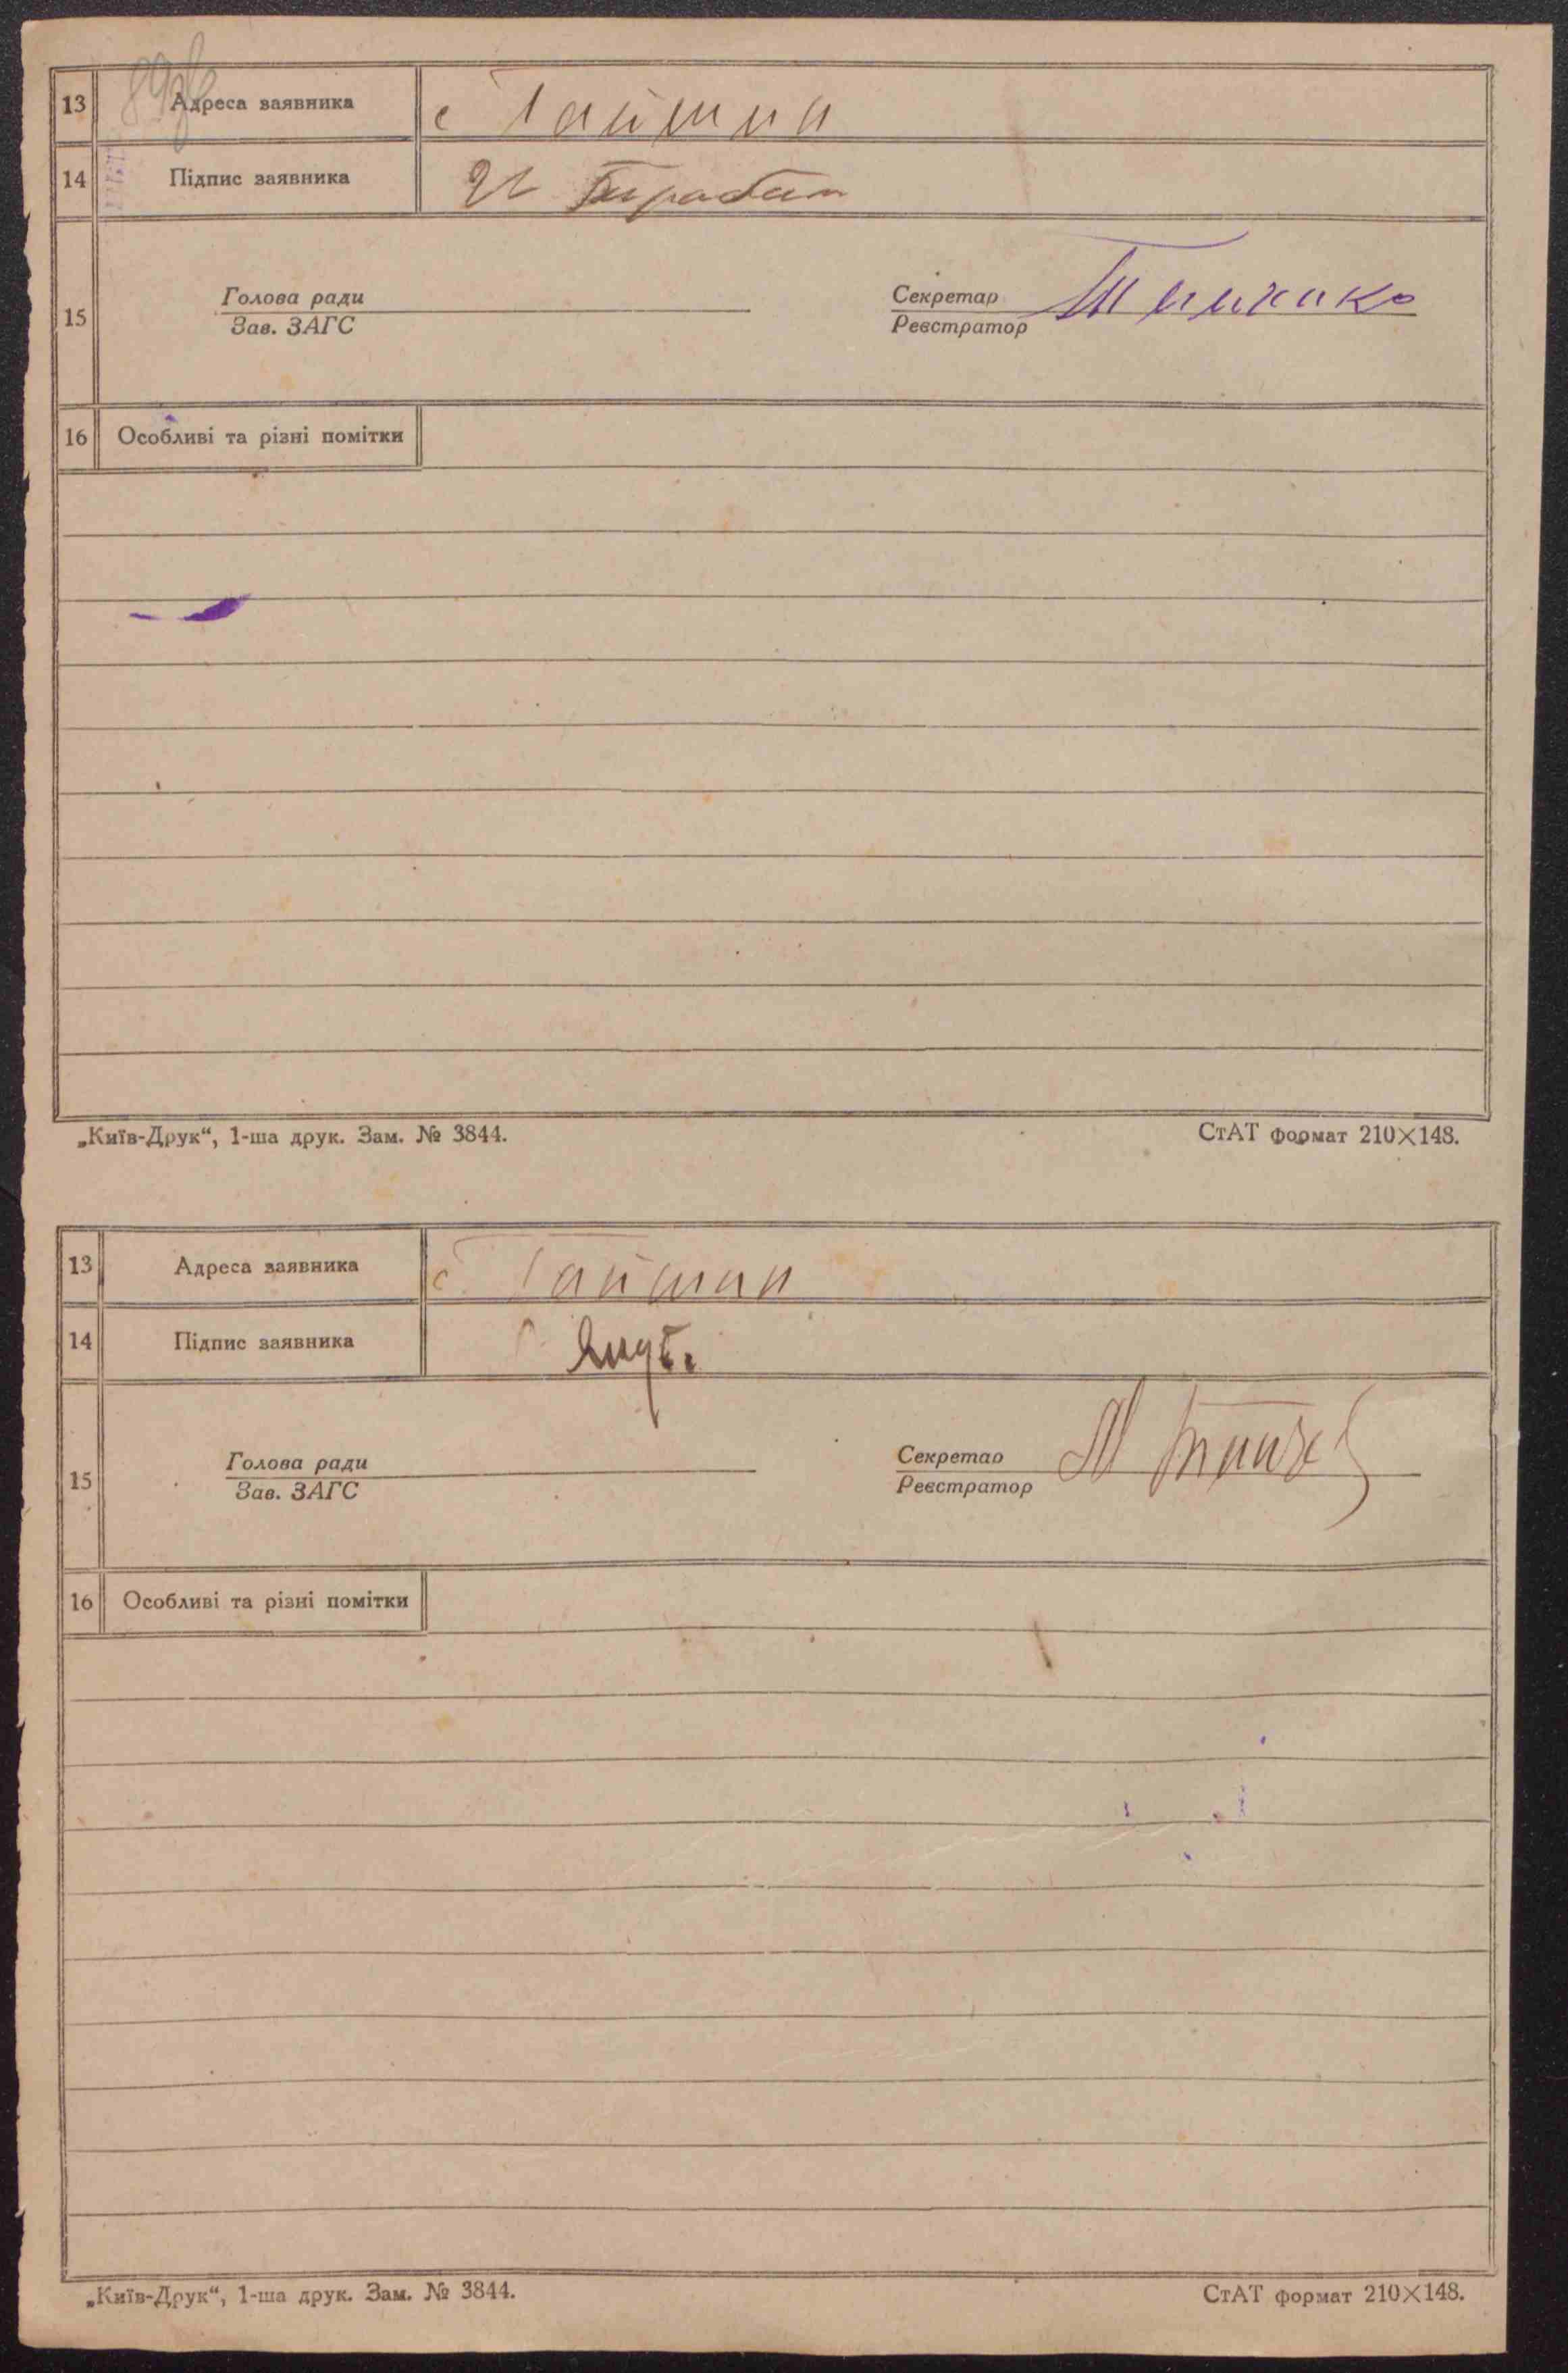 13 Адреса заявника с Гайшин
14 Підпис заявника
15 Голова ради Секретар
Зав. ЗАГС Реєстратор
16 Особливі та різні помітки
„Київ-Друк“, 1-ша друк. Зам. № 3844. СтАТ формат 210×148.
13 Адреса заявника с. Гайшин
14 Підпис заявника
15 Голова ради Секретар
Зав. ЗАГС Реєстратор
16 Особливі та різні помітки
„Київ-Друк“, 1-ша друк. Зам. № 3844. СтАТ формат 210×148.